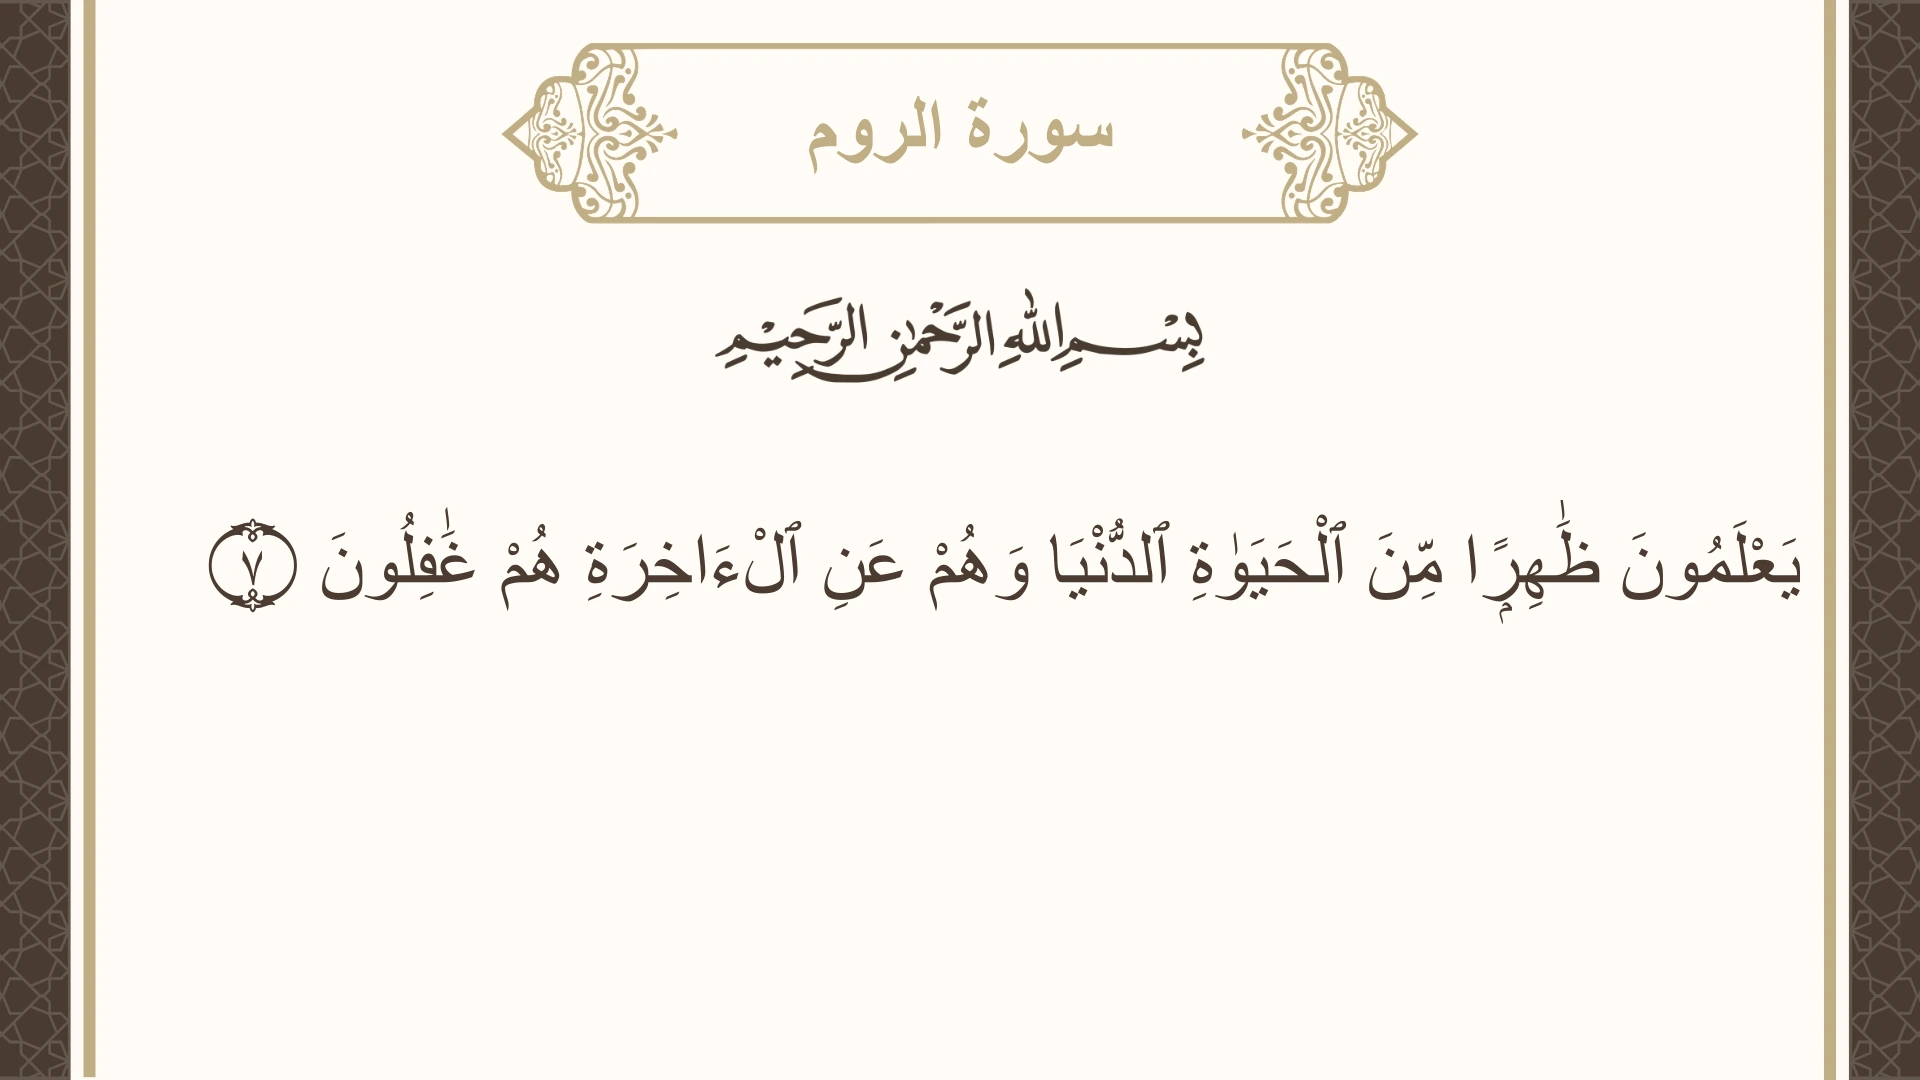 سورة الروم
بِسْمِ اللهِ الرَّحْمٰنِ الرَّحِيْمِ
يَعْلَمُونَ ظَٰهِرًۭا مِّنَ ٱلْحَيَوٰةِ ٱلدُّنْيَا وَهُمْ عَنِ ٱلْءَاخِرَةِ هُمْ غَٰفِلُونَ ٧